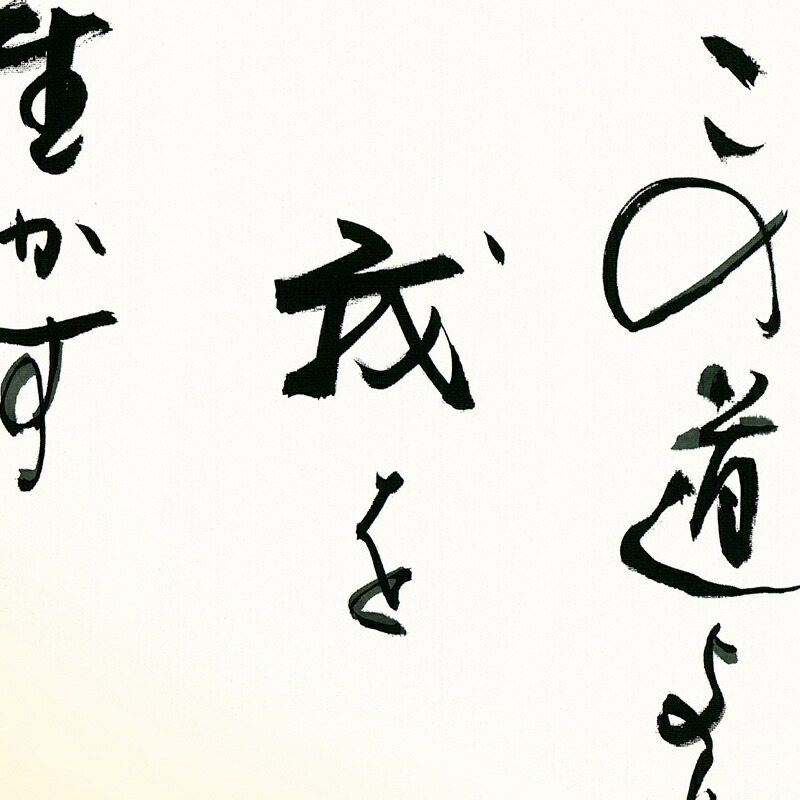 この道よ
我を
生かす